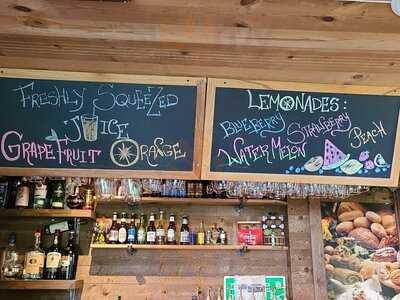 Freshly Squeezed
Juice
GrapeFruit Orange
Lemonades:
Blueberry Strawberry Peach
Watermelon